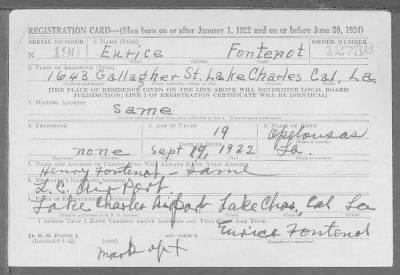 REGISTRATION CARD—(Men born on or after January 1, 1922 and on or before June 30, 1924)
SERIAL NUMBER 1. NAME (Print) ORDER NUMBER
N 190 Eurice Fontenot 12738
(First) (Middle) (Last)
2. PLACE OF RESIDENCE (Print)
1643 Gallagher St. Lake Charles Cal. La.
[THE PLACE OF RESIDENCE GIVEN ON THE LINE ABOVE WILL DETERMINE LOCAL BOARD
JURISDICTION; LINE 2 OF REGISTRATION CERTIFICATE WILL BE IDENTICAL]
3. MAILING ADDRESS
Same
4. TELEPHONE 5. AGE IN YEARS 6. PLACE OF BIRTH
19 Opelousas
DATE OF BIRTH
none Sept 19, 1922 La.
7. NAME AND ADDRESS OF PERSON WHO WILL ALWAYS KNOW YOUR ADDRESS
Henry Fontenot, - Same
8. EMPLOYER'S NAME AND ADDRESS
L.C. Air Port
Lake Charles Airport Lake Chas, Cal La
I AFFIRM THAT I HAVE VERIFIED ABOVE ANSWERS AND THAT THEY ARE TRUE.
D. S. S. FORM 1
(Revised 6-1-42)
Eurice Fontenot